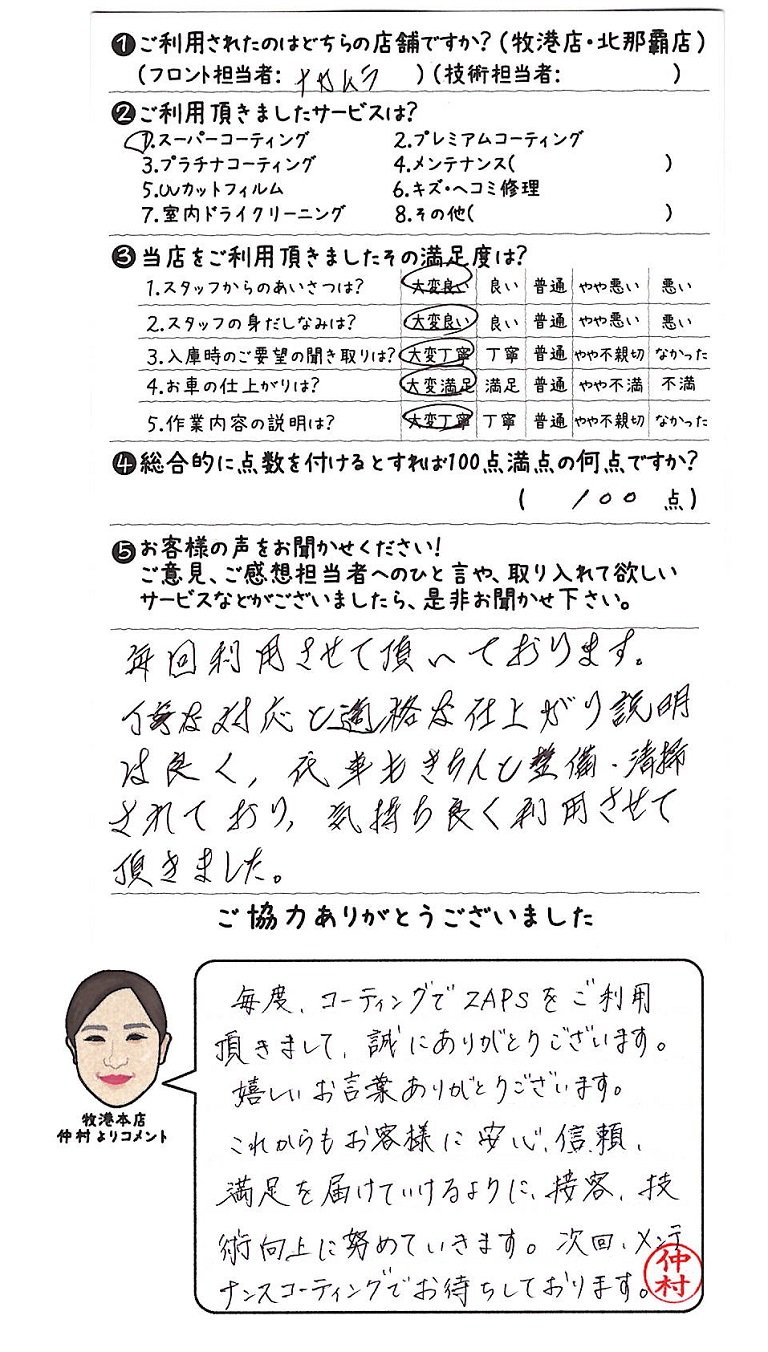 ❶ご利用されたのはどちらの店舗ですか?(牧港店・北那覇店)
(フロント担当者: ナカムラ )(技術担当者: )
❷ご利用頂きましたサービスは?
1.スーパーコーティング 2.プレミアムコーティング
3.プラチナコーティング 4.メンテナンス( )
5.UVカットフィルム 6.キズ・ヘコミ修理
7.室内ドライクリーニング 8.その他( )
❸当店をご利用頂きましたその満足度は?
1.スタッフからのあいさつは? 大変良い 良い 普通 やや悪い 悪い
2.スタッフの身だしなみは? 大変良い 良い 普通 やや悪い 悪い
3.入庫時のご要望の聞き取りは? 大変丁寧 丁寧 普通 やや不親切 なかった
4.お車の仕上がりは? 大変満足 満足 普通 やや不満 不満
5.作業内容の説明は? 大変丁寧 丁寧 普通 やや不親切 なかった
❹総合的に点数を付けるとすれば100点満点の何点ですか?
( 100 点)
❺お客様の声をお聞かせください!
ご意見、ご感想担当者へのひと言や、取り入れて欲しい
サービスなどがございましたら、是非お聞かせ下さい。
毎回利用させて頂いております。
丁寧な対応と適格な仕上がり説明
は良く、代車もきちんと整備・清掃
されており、気持ち良く利用させて
頂きました。
ご協力ありがとうございました
毎度、コーティングでZAPSをご利用
頂きまして、誠にありがとうございます。
嬉しいお言葉ありがとうございます。
これからもお客様に安心、信頼、
満足を届けていけるように、接客、技
術向上に努めていきます。次回、メンテ
ナンスコーティングでお待ちしております。
仲村
牧港本店
仲村よりコメント